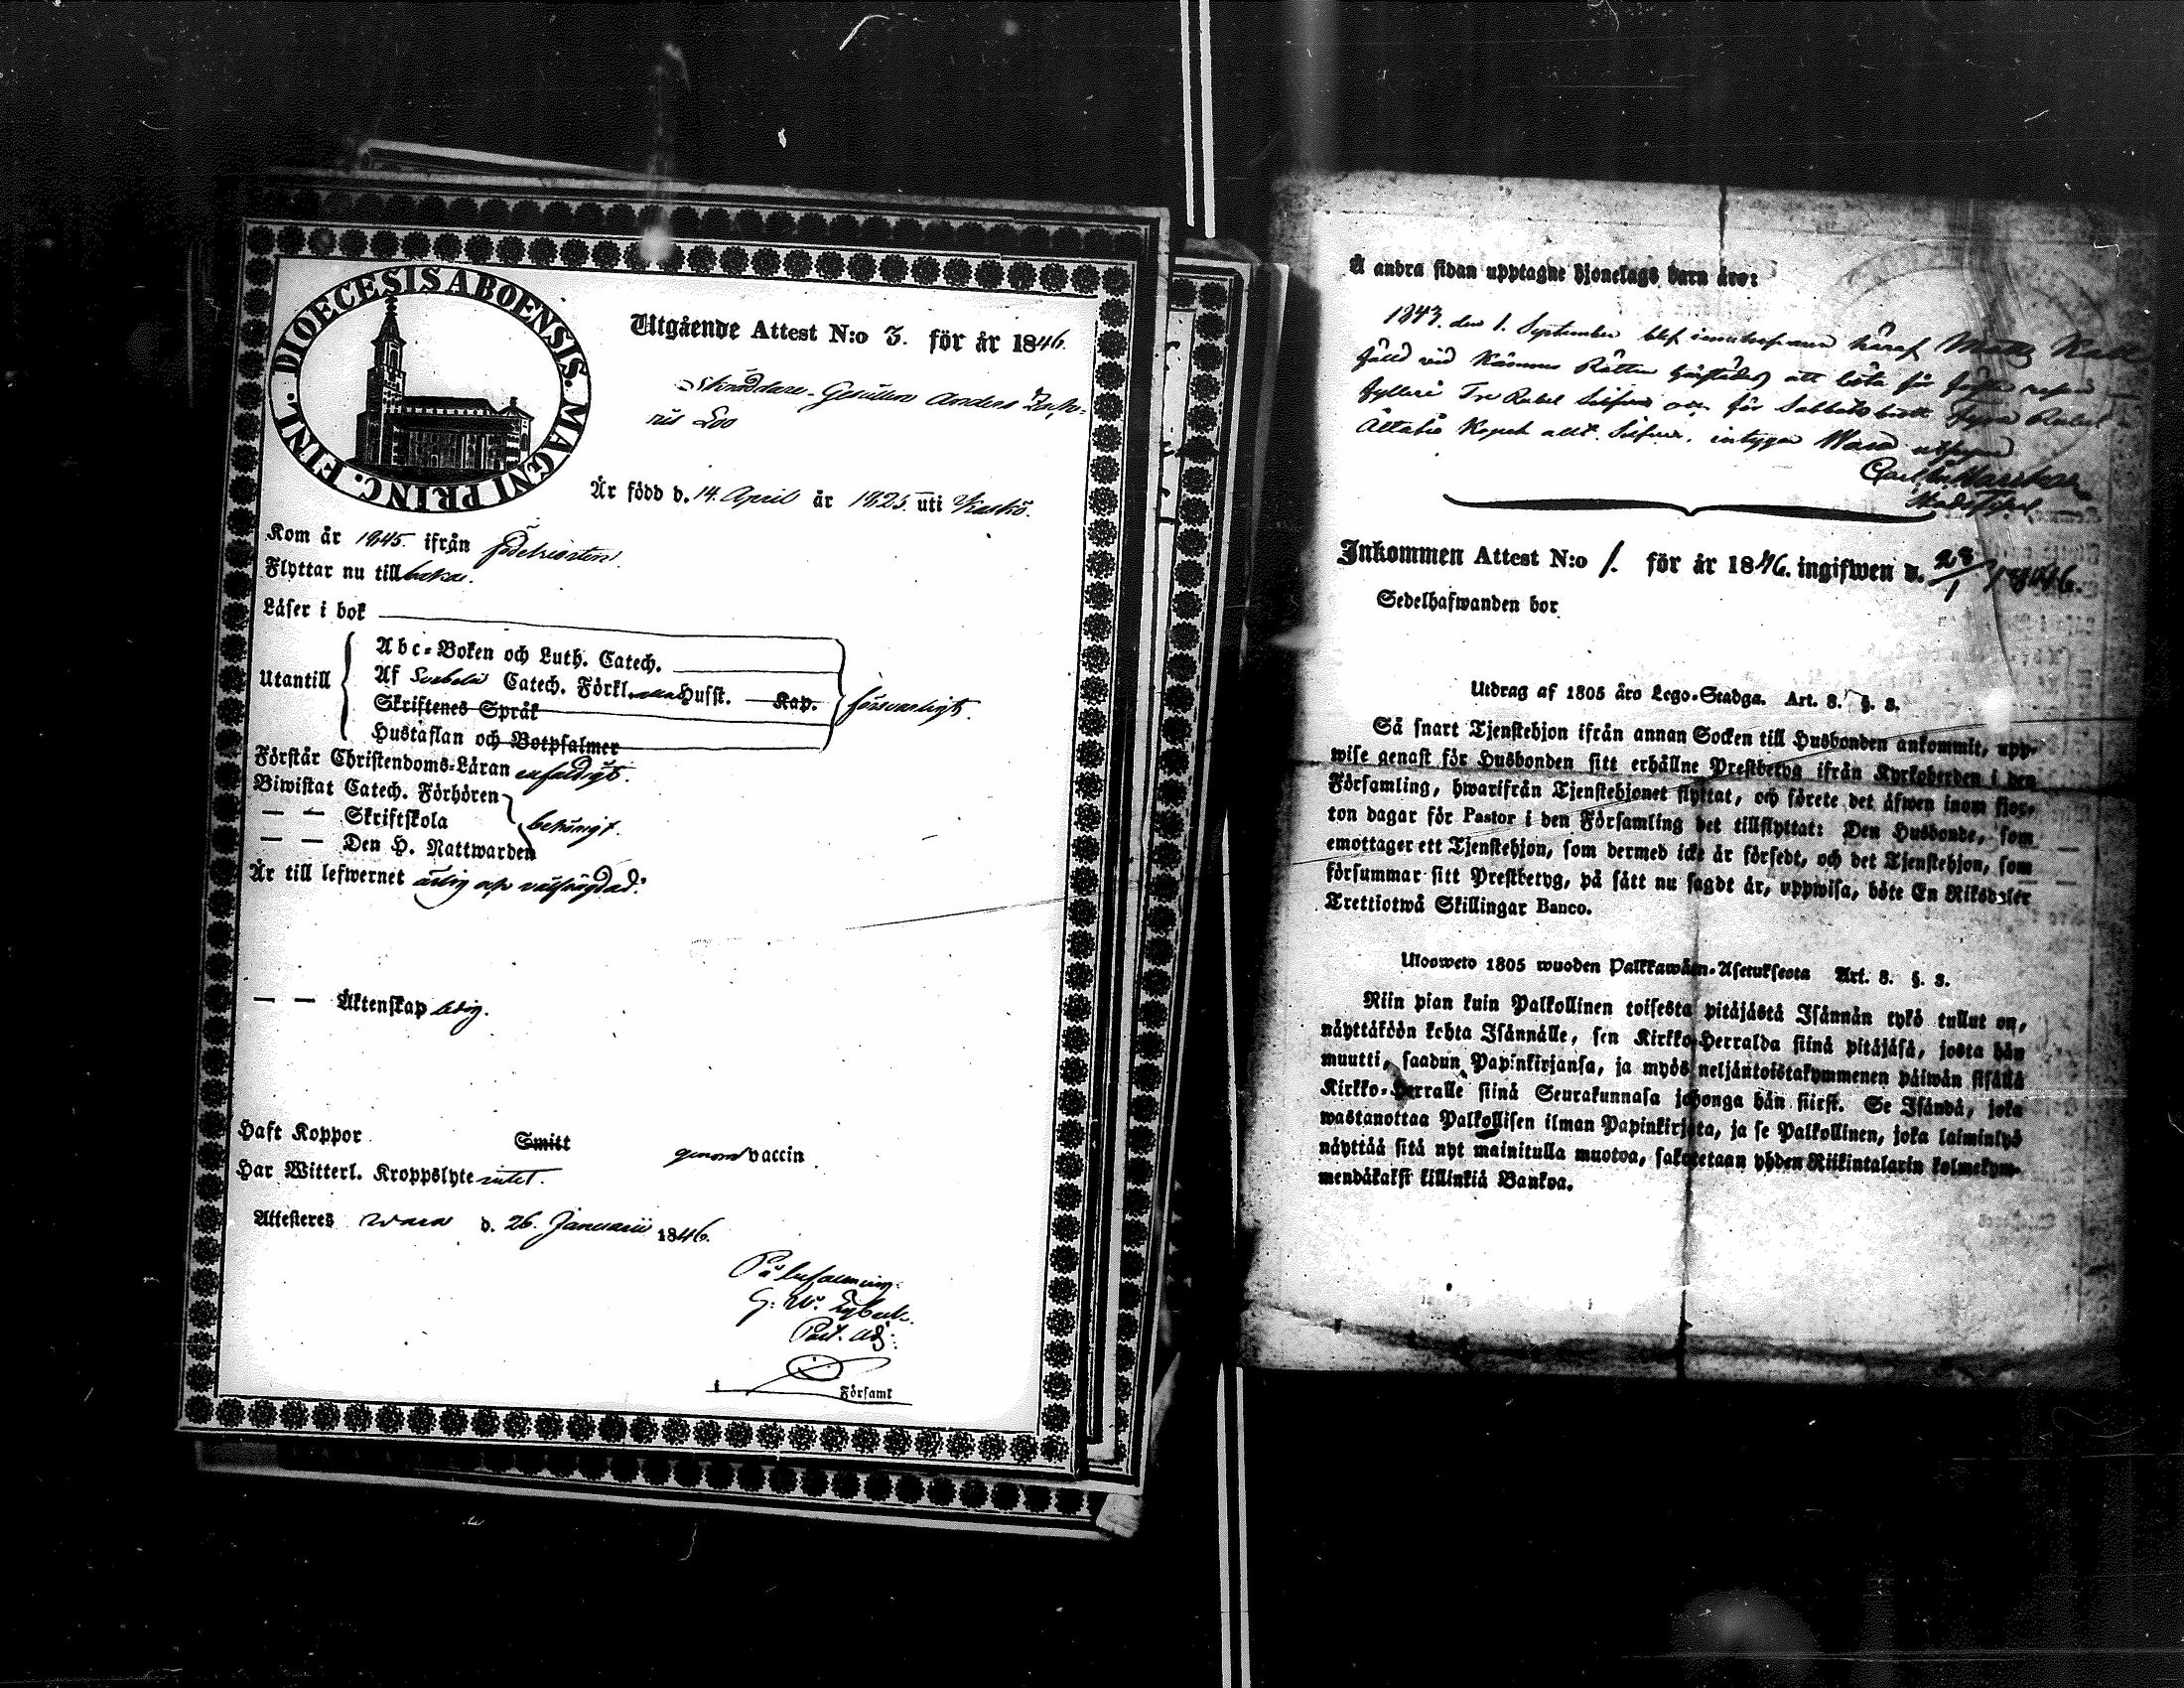 DIOECESIS ABOENSIS. MAGNI PRINC. FINL.
Utgående Attest N:o 3. för år 1846.
Skräddare-Gesällen Anders Zach-
ris Loo
Är född d. 14. April år 1825. uti Kaskö.
Kom år 1845. ifrån födelseorten.
Flyttar nu till
Läser i bok
Utantill
Abc-Boken och Luth. Catech.
Af Svebelii Catech. Förkl. Husst. Kap.
försvarligt.
Skriftenes Språk
Hustaflan och Botpsalmer
Förstår Christendoms-Läran enfaldigt.
Biwistat Catech. Förhören
— — Skriftskola
behörigt.
— — Den H. Nattwarden
Är till lefwernet ärlig och välfrägdad.
— — Äktenskap ledig.
Haft Koppor Smitt genom vaccin
Har Witterl. Kroppslyte intet.
Attesteres Wasa d. 26. Januarii 1846.
På befallning:
G. W.
Past. adj:
Församl
Å andra sidan upptagne hjonelags barn äro:
1843. den 1. September blef
fälld vid Kämners Rätten härstädes att böta för
fylleri Tre Rubel Silfver och för Sabbatsbrott Fyra Rubel
Åttatio Kopek allt Silfver, intygar Wasa
Carl
Inkommen Attest N:o 1. för år 1846. ingifwen d. 28/1 1846.
Sedelhafwanden bor
Utdrag af 1805 års Lego-Stadga. Art. 8. §. 3.
Så snart Tjenstehjon ifrån annan Socken till Husbonden ankommit, upp-
wise genast för Husbonden sitt erhållne Prestbetyg ifrån Kyrkoherden i den
Församling, hwarifrån Tjenstehjonet flyttat, och förete det äfwen inom fjor-
ton dagar för Pastor i den Församling det tillflyttat: Den Husbonde, som
emottager ett Tjenstehjon, som dermed icke är försedt, och det Tjenstehjon, som
försummar sitt Prestbetyg, på sätt nu sagdt är, uppwisa, böte En Riksdaler
Trettiotwå Skillingar Banco.
Ulosweto 1805 wuoden Palkkawäen-Asetuksesta Art. 8. §. 3.
Niin pian kuin Palkollinen toisesta pitäjästä Isännän tykö tullut on,
näyttäköön kohta Isännälle, sen Kirkko-Herralda siinä pitäjäsä, josta hän
muutti, saadun Papinkirjansa, ja myös neljäntoistakymmenen päiwän sisällä
Kirkko-Herralle siinä Seurakunnasa johonga hän siirsi. Se Isändä, joka
wastanottaa Palkollisen ilman Papinkirjata, ja se Palkollinen, joka laiminlyö
näyttää sitä nyt mainitulla muotoa, sakotetaan yhden Riikintalarin kolmekym-
mendäkaksi killinkiä Bankoa.